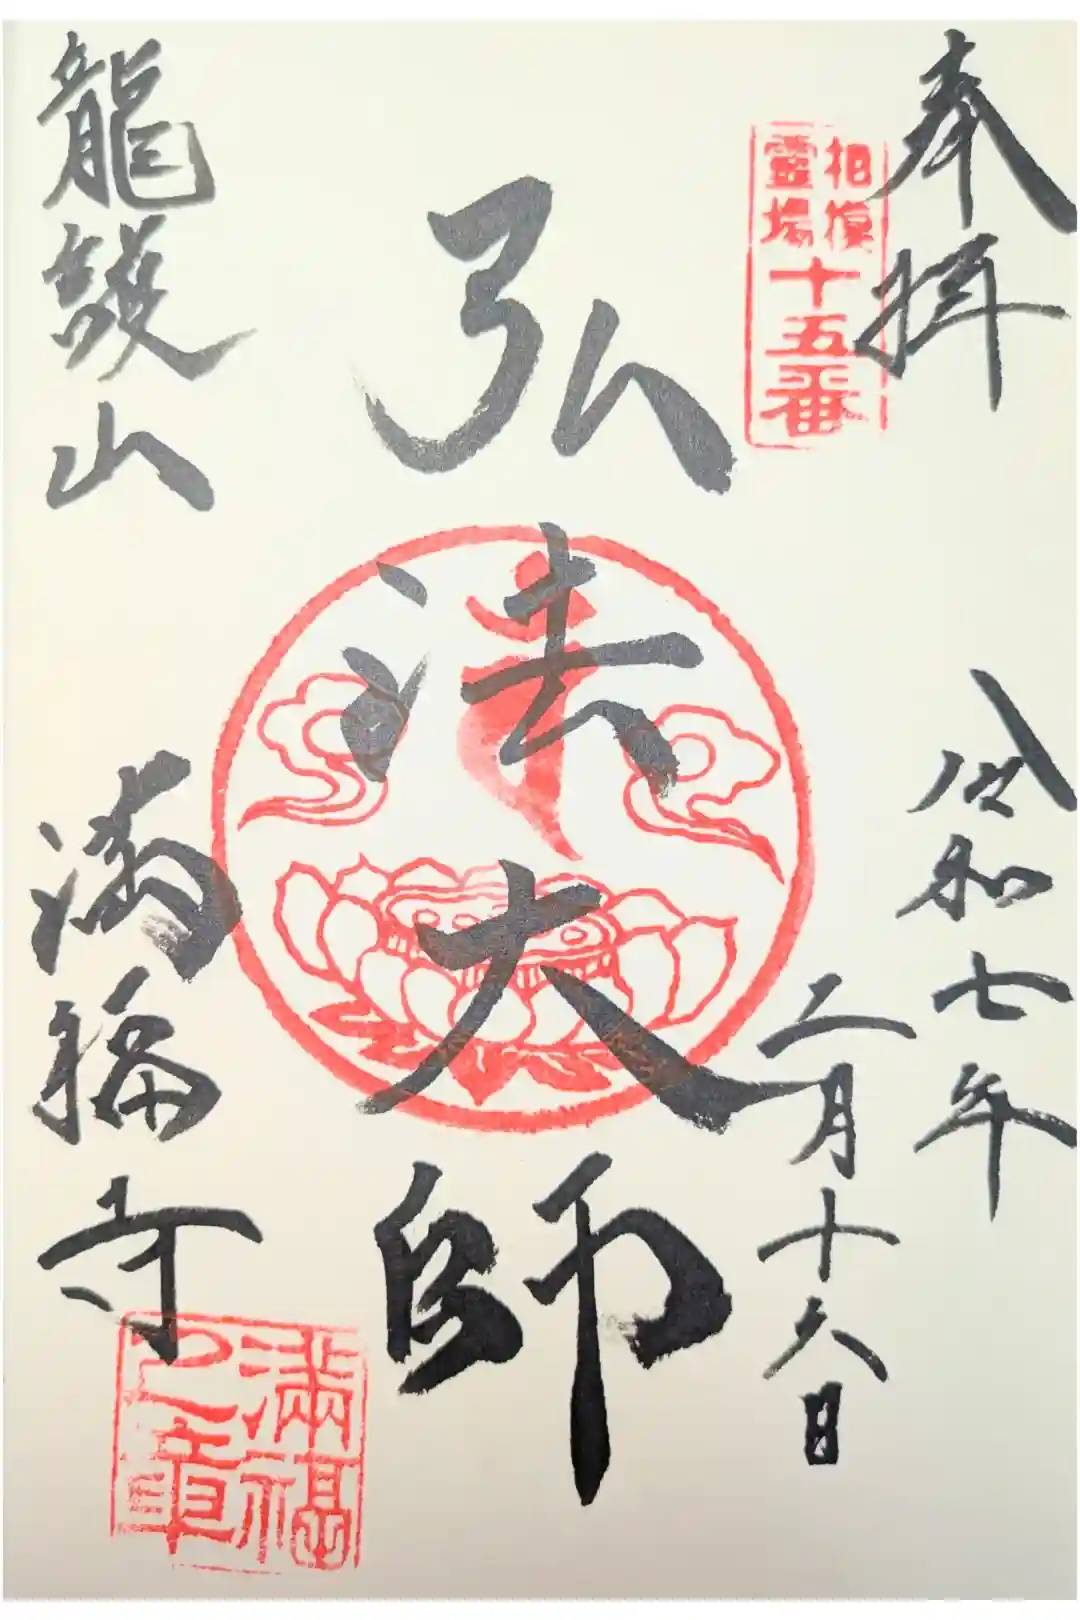 奉拝
相模
霊場
十五番
令和七年
二月十六日
弘法大師
龍護山
満福寺
満福
之章